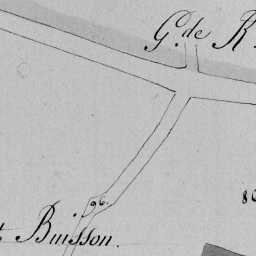 G. de R.
96.
Buisson.